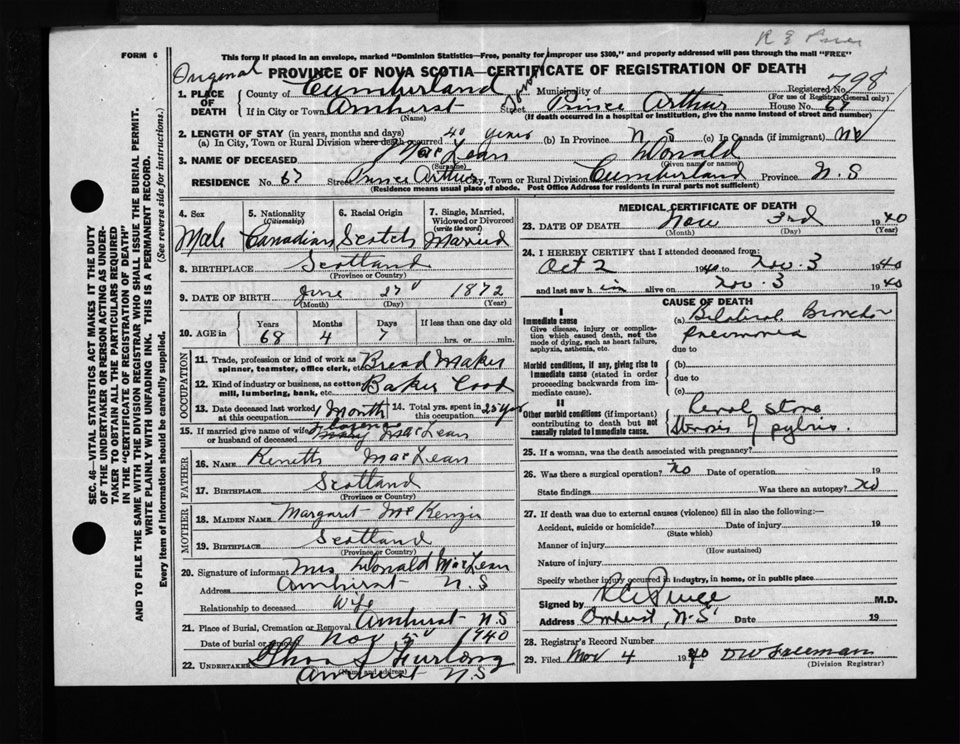 FORM 6
This form if placed in an envelope, marked "Dominion Statistics—Free, penalty for improper use $300," and property addressed will pass through the mail "FREE"
Original
PROVINCE OF NOVA SCOTIA—CERTIFICATE OF REGISTRATION OF DEATH
Registered No. 798
(For use of Registrar General only)
1. PLACE OF DEATH County of Cumberland Municipality of
If in City or Town Amherst Street Prince Arthur House No. 67
(Name) (If death occurred in a hospital or institution, give the name instead of street and number)
2. LENGTH OF STAY (in years, months and days)
(a) In City, Town or Rural Division where death occurred 40 years (b) In Province N.S (c) In Canada (if immigrant) no
3. NAME OF DECEASED MacLean Donald
(Surname) (Given name or names)
RESIDENCE No. 67 Street Prince Arthur City, Town or Rural Division Cumberland Province N.S
(Residence means usual place of abode. Post Office Address for residents in rural parts not sufficient)
4. Sex Male
5. Nationality (Citizenship) Canadian
6. Racial Origin Scotch
7. Single, Married, Widowed or Divorced (write the word) Married
8. BIRTHPLACE Scotland
(Province or Country)
9. DATE OF BIRTH June 27 1872
(Month) (Day) (Year)
10. AGE in Years 68 Months 4 Days 7 If less than one day old
hrs. or min.
OCCUPATION
11. Trade, profession or kind of work as spinner, teamster, office clerk, etc. Bread Maker
12. Kind of industry or business, as cotton mill, lumbering, bank, etc. Baker
13. Date deceased last worked at this occupation 1 Month
14. Total yrs. spent in this occupation 25 yrs
15. If married give name of wife or husband of deceased Mary MacLean
FATHER
16. NAME Kenneth MacLean
17. BIRTHPLACE Scotland
(Province or Country)
MOTHER
18. MAIDEN NAME Margaret McKenzie
19. BIRTHPLACE Scotland
(Province or Country)
20. Signature of informant Mrs Donald MacLean
Address Amherst N.S
Relationship to deceased Wife
21. Place of Burial, Cremation or Removal Amherst N.S
Date of burial or Nov 5 1940
22. UNDERTAKER Furlong
Amherst N.S
MEDICAL CERTIFICATE OF DEATH
23. DATE OF DEATH Nov 3rd 1940
(Month) (Day) (Year)
24. I HEREBY CERTIFY that I attended deceased from:
Oct 2 1940 to Nov. 3 1940
and last saw him alive on Nov. 3 1940
CAUSE OF DEATH
I
Immediate cause
Give disease, injury or complication which caused death, not the mode of dying, such as heart failure, asphyxia, asthenia, etc.
(a) Bilateral Broncho Pneumonia
due to
Morbid conditions, if any, giving rise to immediate cause (stated in order proceeding backwards from immediate cause).
(b)
due to
(c)
II
Other morbid conditions (if important) contributing to death but not causally related to immediate cause.
Renal stone
Stenosis of pylorus.
25. If a woman, was the death associated with pregnancy?
26. Was there a surgical operation? no Date of operation 19
State findings Was there an autopsy? no
27. If death was due to external causes (violence) fill in also the following:—
Accident, suicide or homicide? Date of injury 19
(State which)
Manner of injury
(How sustained)
Nature of injury
Specify whether injury occurred in industry, in home, or in public place
Signed by M.D.
Address Amherst, N.S. Date 19
28. Registrar's Record Number
29. Filed Nov 4 1940 DW Freeman
(Division Registrar)
SEC. 46—VITAL STATISTICS ACT MAKES IT THE DUTY
OF THE UNDERTAKER OR PERSON ACTING AS UNDER-
TAKER TO OBTAIN ALL THE PARTICULARS REQUIRED
IN THE "CERTIFICATE OF REGISTRATION OF DEATH"
AND TO FILE THE SAME WITH THE DIVISION REGISTRAR WHO SHALL ISSUE THE BURIAL PERMIT.
WRITE PLAINLY WITH UNFADING INK. THIS IS A PERMANENT RECORD.
Every item of information should be carefully supplied. (See reverse side for instructions.)